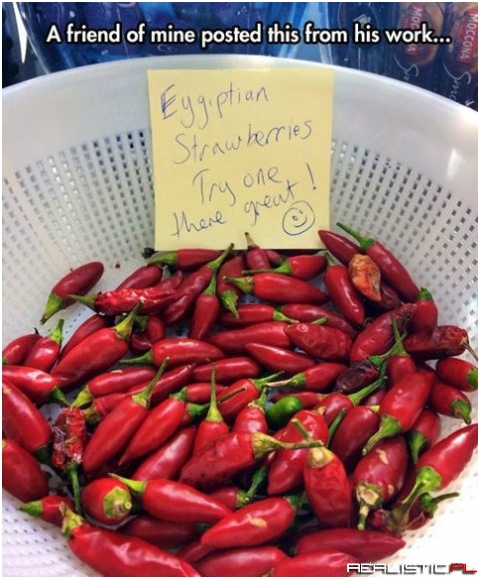 A friend of mine posted this from his work...
MOCCONA
MOCCONA
Eygiptian
Strawberries
Try one
there great!
REALISTIC.PL